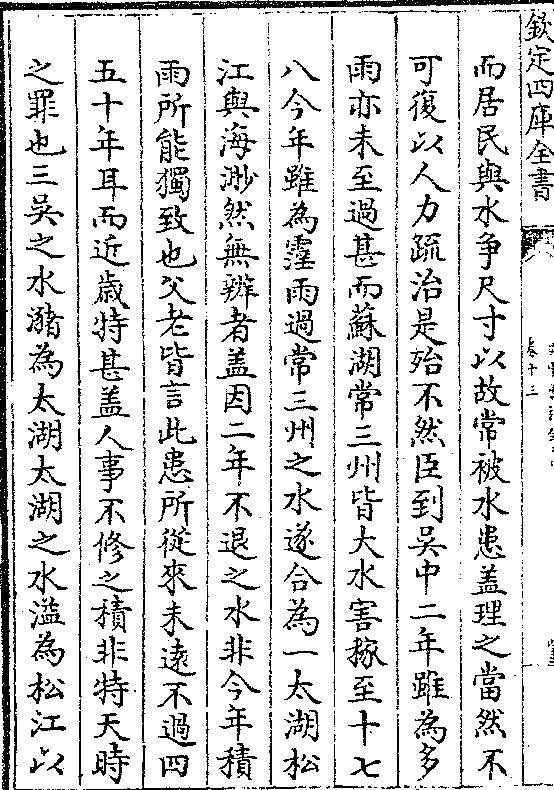 欽定四庫全書
卷十三
而居民與水争尺寸以故常被水患盖理之當然不
可復以人力疏治是殆不然臣到吳中二年雖為多
雨亦未至過甚而蘇湖常三州皆大水害稼至十七
八今年雖為霪雨過常三州之水遂合為一太湖松
江與海渺然無辨者盖因二年不退之水非今年積
雨所能獨致也父老皆言此患所從來未遠不過四
五十年耳而近歲特甚盖人事不修之積非特天時
之罪也三吳之水瀦為太湖太湖之水溢為松江以